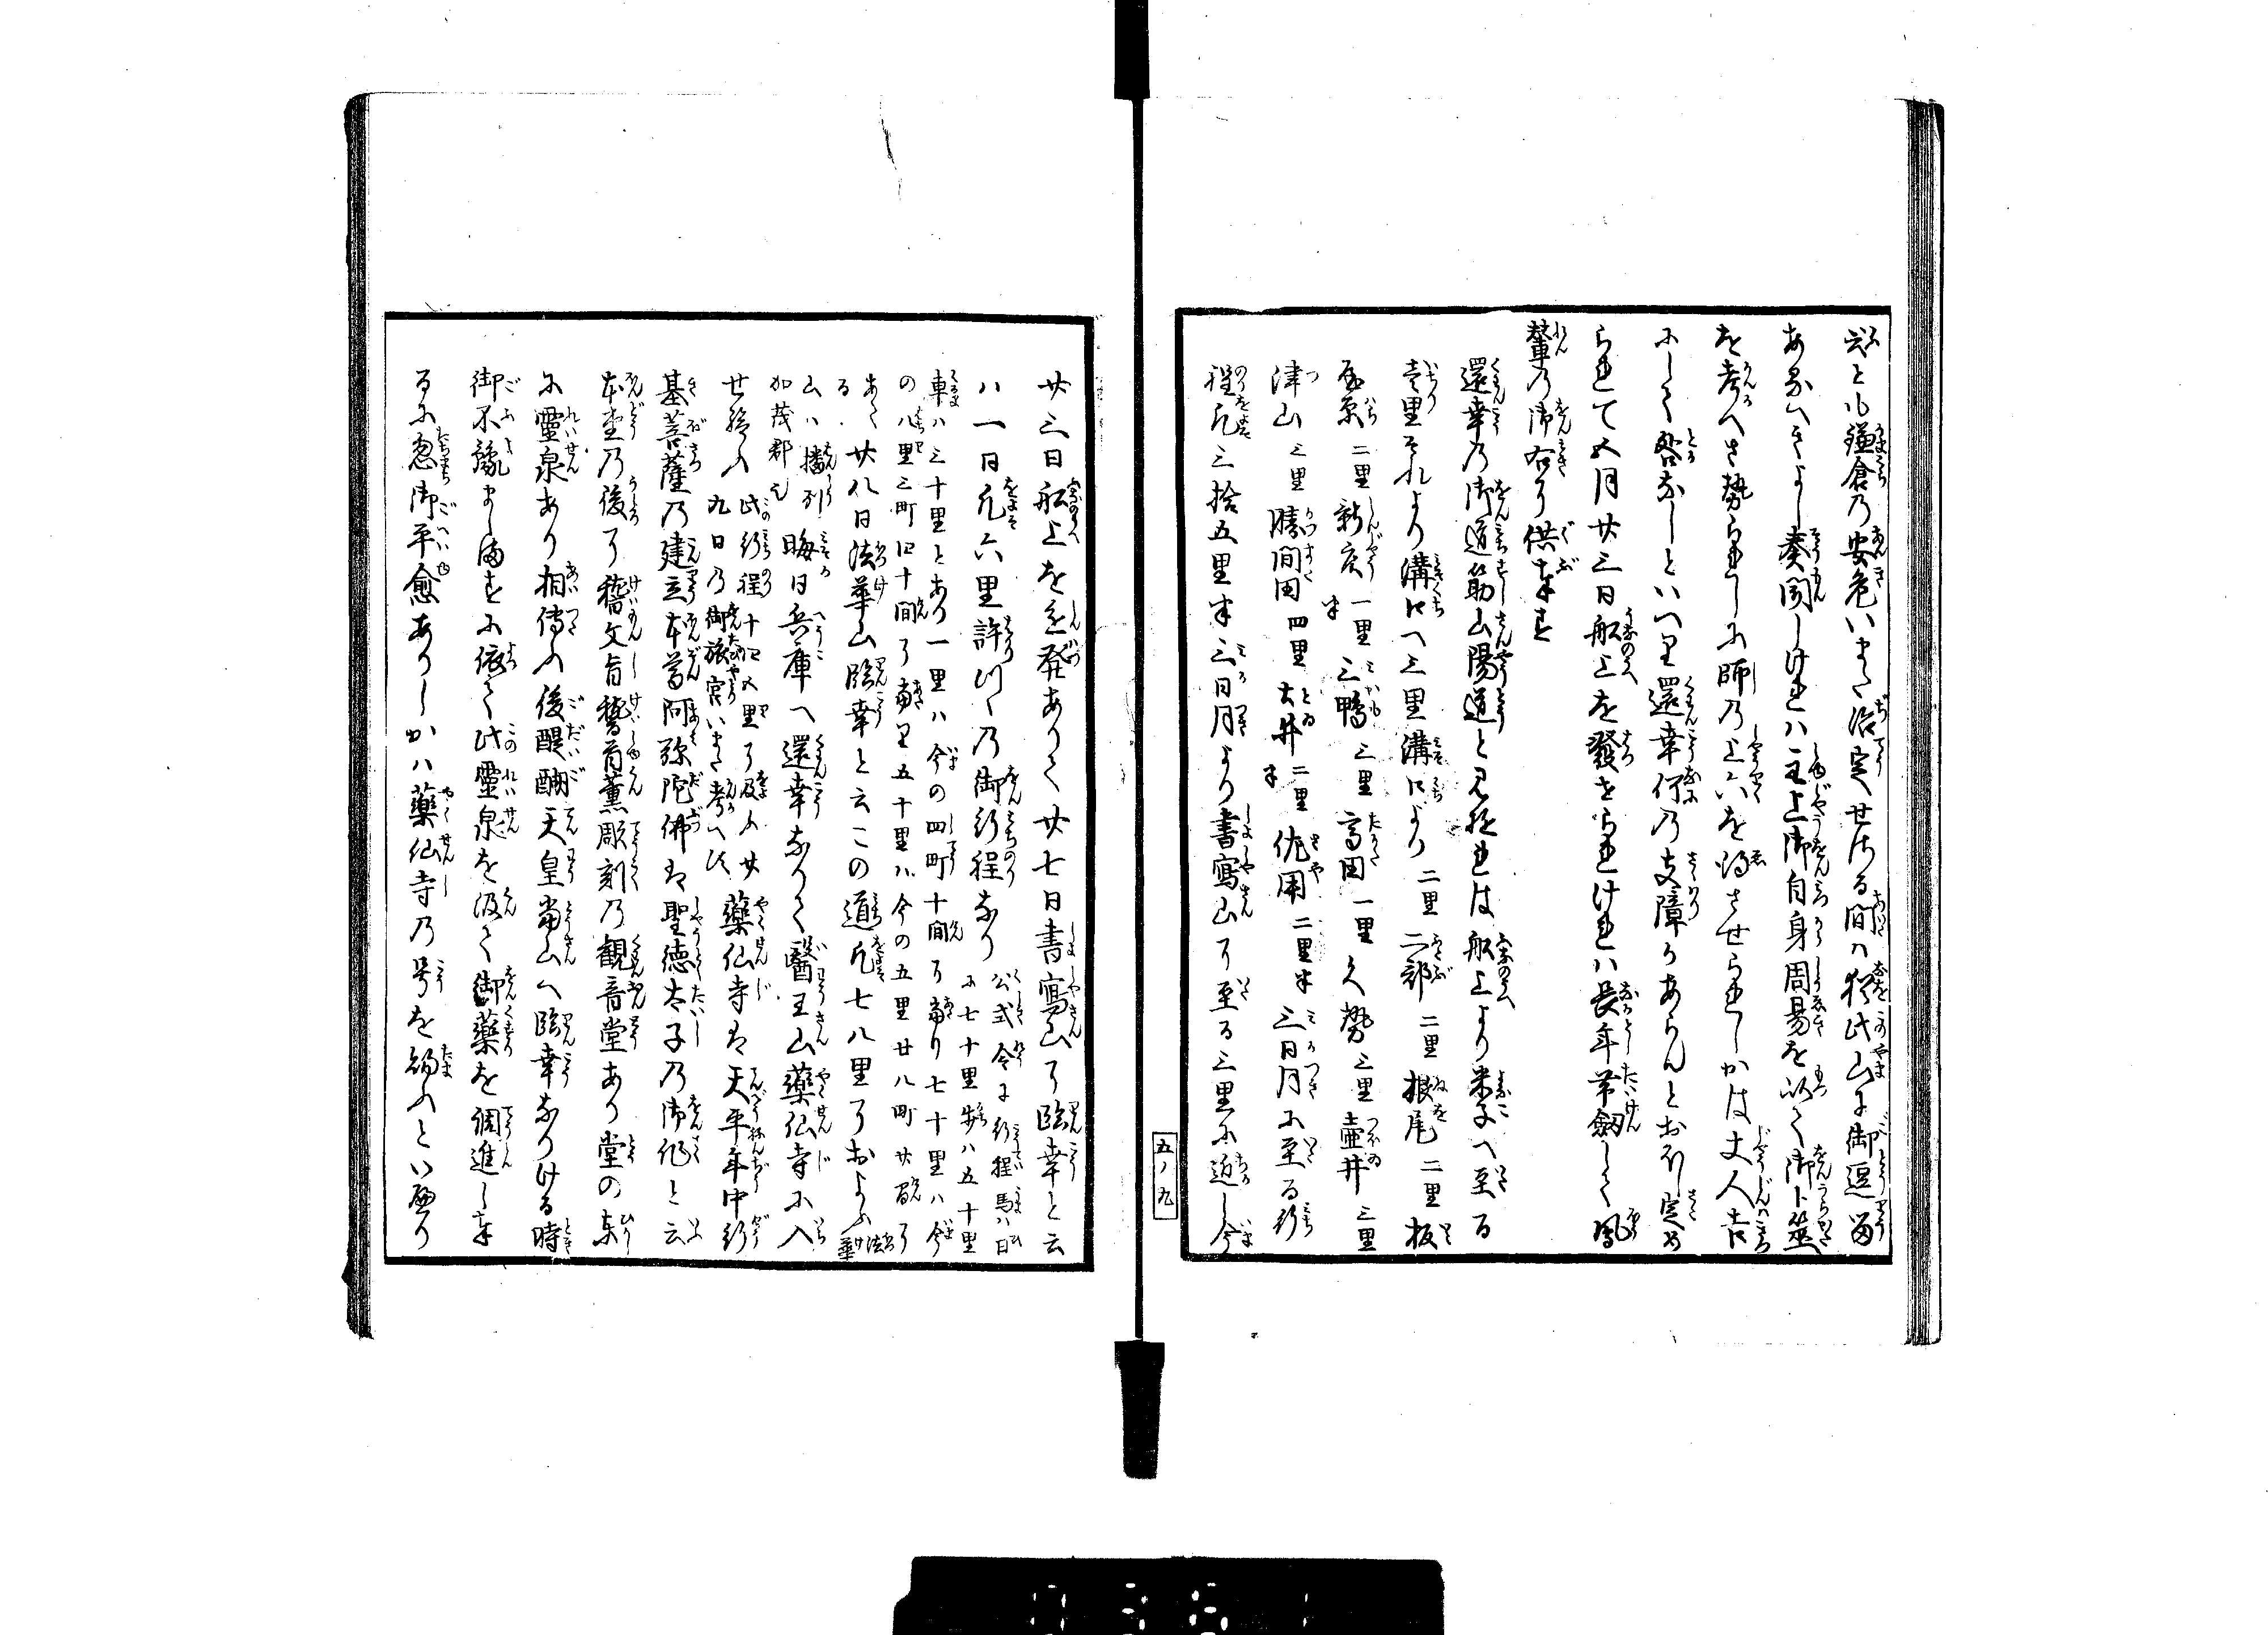 ども鎌倉乃安危いまた治定せざる間ハ猶此山に御逗留
あるへきよし奏聞しけれハ主上御自身周易を以て御卜筮
を考へさせられしに師乃上六を得させられしかは丈人吉
にして咎なしといへり還幸何乃支障かあらんとおほし定め
られて五月廿三日船上を發せられけれハ長年帯劔して鳳
輦乃御右に供奉す
還幸乃御道筋山陽道と見えたれは船上より米子へ至る
壱里それより溝口へ三里溝口より二里二部二里根尾二里板
原二里新庄一里半三鴨三里高田一里久勢三里壺井三里
津山三里勝間田四里土井二里半佐用二里半三日月に至る行
程凡三拾五里半三日月より書寫山に至る三里に近し今
五ノ九
廿三日船上を進發ありて廿七日書寫山に臨幸と云
ハ一日凡六里許りつゝ乃御行程なり公式令に行程馬ハ日
に七十里歩ハ五十里
車ハ三十里とあり一里ハ今の四町十間に當り七十里ハ今
の八里三町四十間に當里五十里ハ今の五里廿八町廿間に
あたる廿八日法華山臨幸と云この道凡七八里におよふ法華
山ハ播州
加茂郡也晦日兵庫へ還幸なりて醫王山藥仙寺に入
せ給ふ此行程十四五里に及ふ廿
九日乃御旅宿いまた考へす藥仙寺は天平年中行
基菩薩乃建立本尊阿弥陀佛は聖徳太子乃御作と云
本堂乃後に誓文旨誓首薫彫刻乃観音堂あり堂の東
に靈泉あり相傳ふ後醍醐天皇當山へ臨幸なりける時
御不豫ましませに依て此靈泉を汲て御藥を調進し奉
るに忽御平愈ありしかハ藥仙寺乃号を賜ふといへり